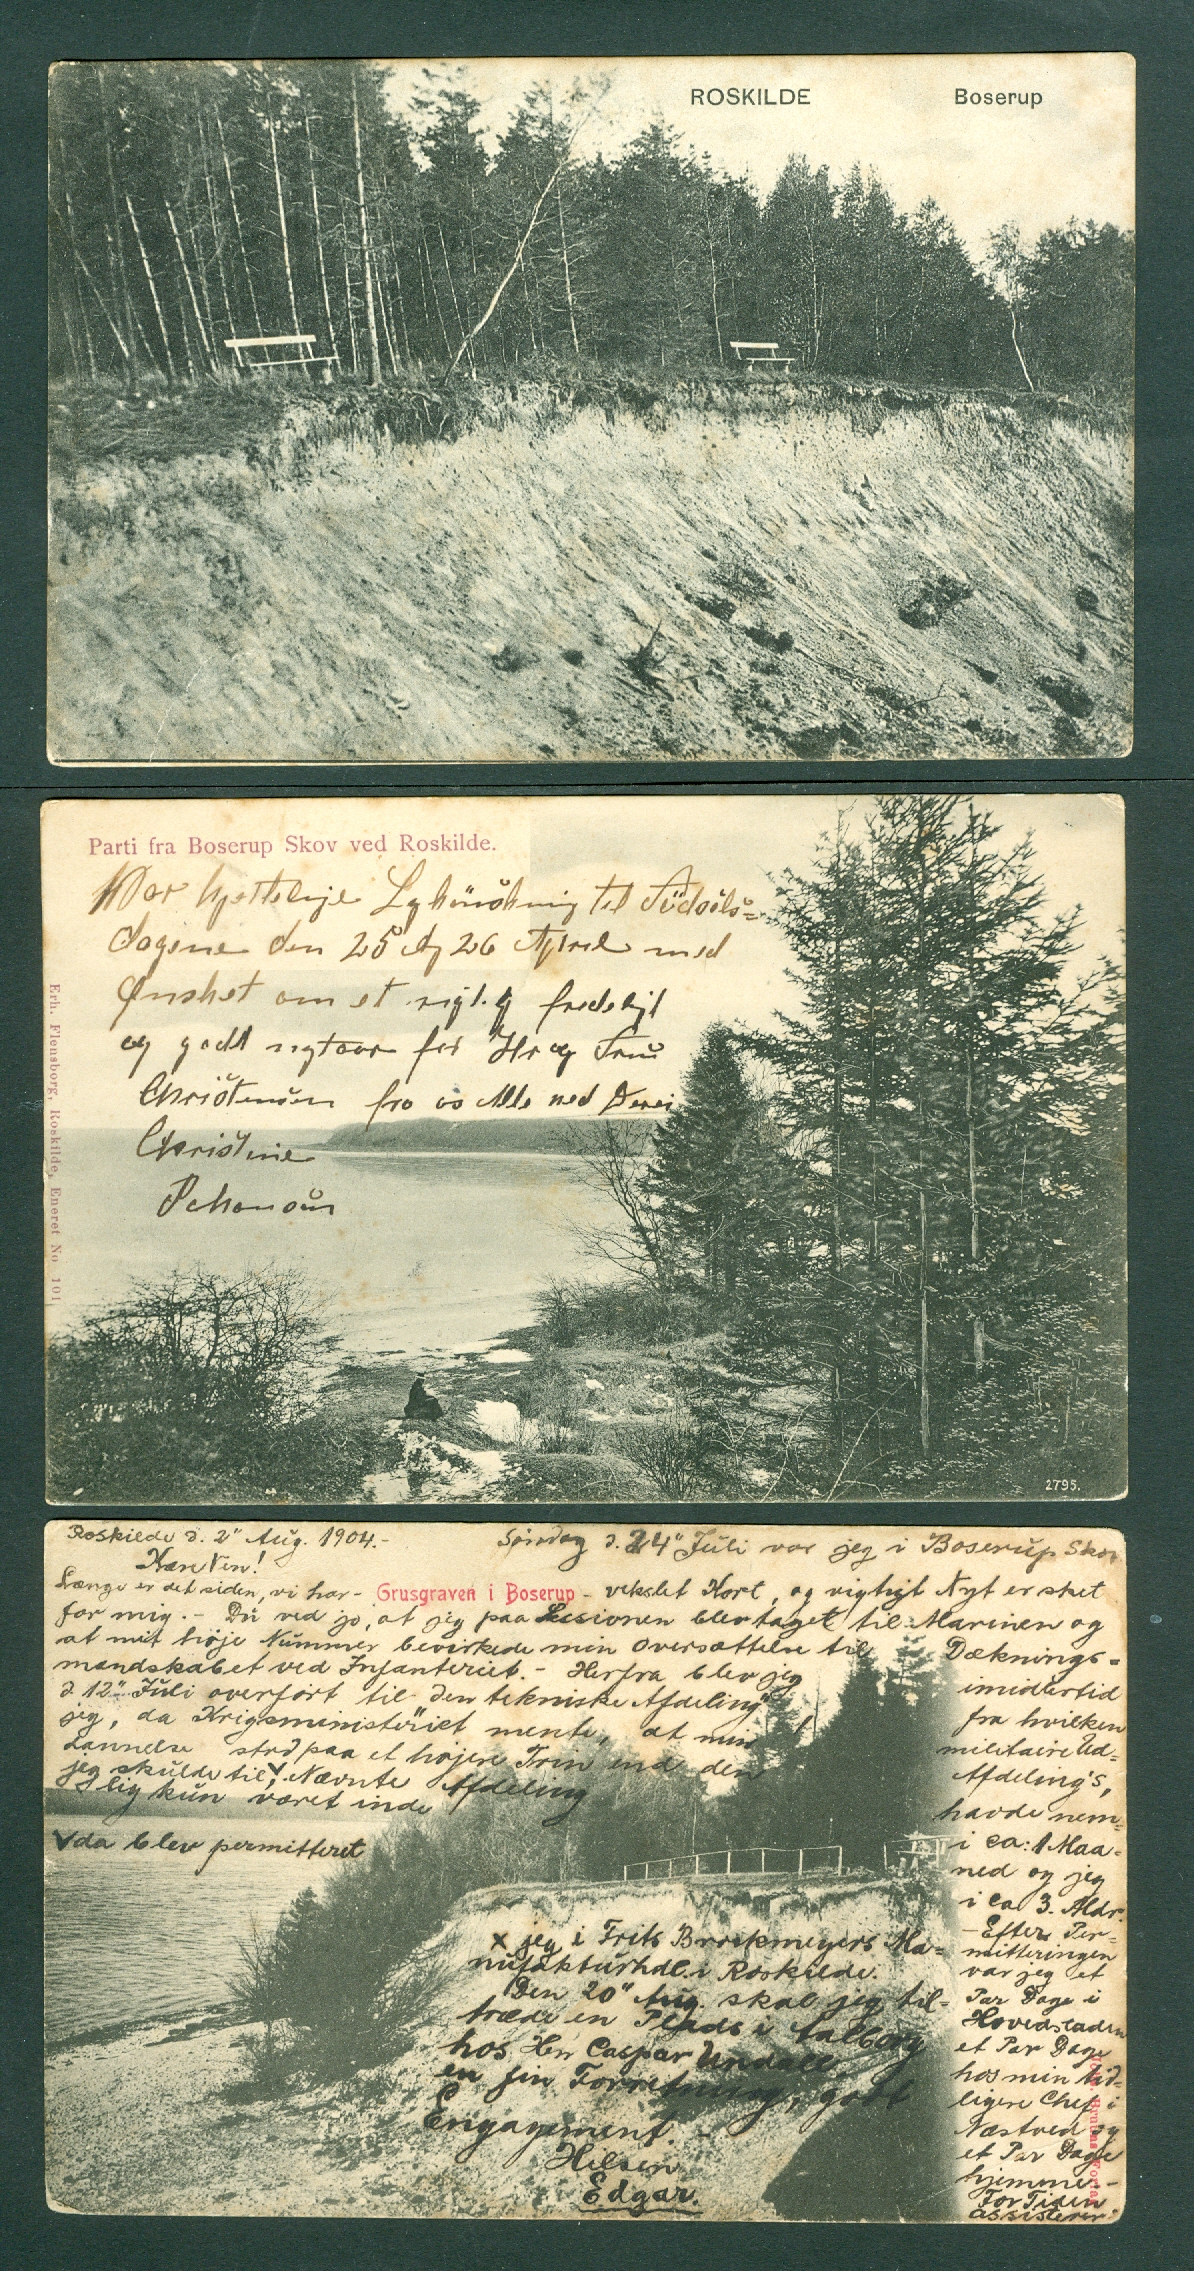 ROSKILDE Boserup
Parti fra Boserup Skov ved Roskilde.
Vor hjertelige Lykönskning til Födsels=
dagene den 25 og 26 April med
Ønsket om et rigtig fredeligt
og godt nytaar for Hr og Frue
Christensen fra os Alle ned Deres
Christine
Erh. Flensborg, Roskilde, Eneret No 101
2795.
Roskilde d. 2" Aug. 1904.-
Søndag d. 24" Juli var jeg i Boserup Skov
Kære Ven!
Længe er det siden, vi har - Grusgraven i Boserup - vekslet Kort, og vigtigt Nyt er sket
for mig. - Du ved jo, at jeg paa Sessionen blev taget til Marinen og
at mit høje Nummer bevirkede min Oversættelse til Dæknings=
mandskabet ved Infanteriet. - Herfra blev jeg imidlertid
d 12" Juli overført til "den tekniske Afdeling" fra hvilken
jeg, da Krigsministeriet mente, at min militaire Ud=
dannelse stod paa et højere Trin end den Afdeling's,
jeg skulde til, Nævnte Afdeling havde nem=
lig kun været inde i ca: 1 Maa=
da blev permitteret
ned og jeg
i ca 3. Aldr.
- Efter Per=
mitteringen
var jeg et
Par Dage i
Hovedstaden
et Par Dage
hos min tid=
ligere Chef i
Næstved og
et Par Dage
hjemme. -
For Tiden
assisterer
x jeg i Frits Brockmeyers Ma=
nufakturhdl. i Roskilde.
Den 20" Aug. skal jeg til=
træde en Plads i Aalborg
hos Herr Caspar Undall
en fin Forretning, godt
Engagement. -
Hilsen
Edgar.